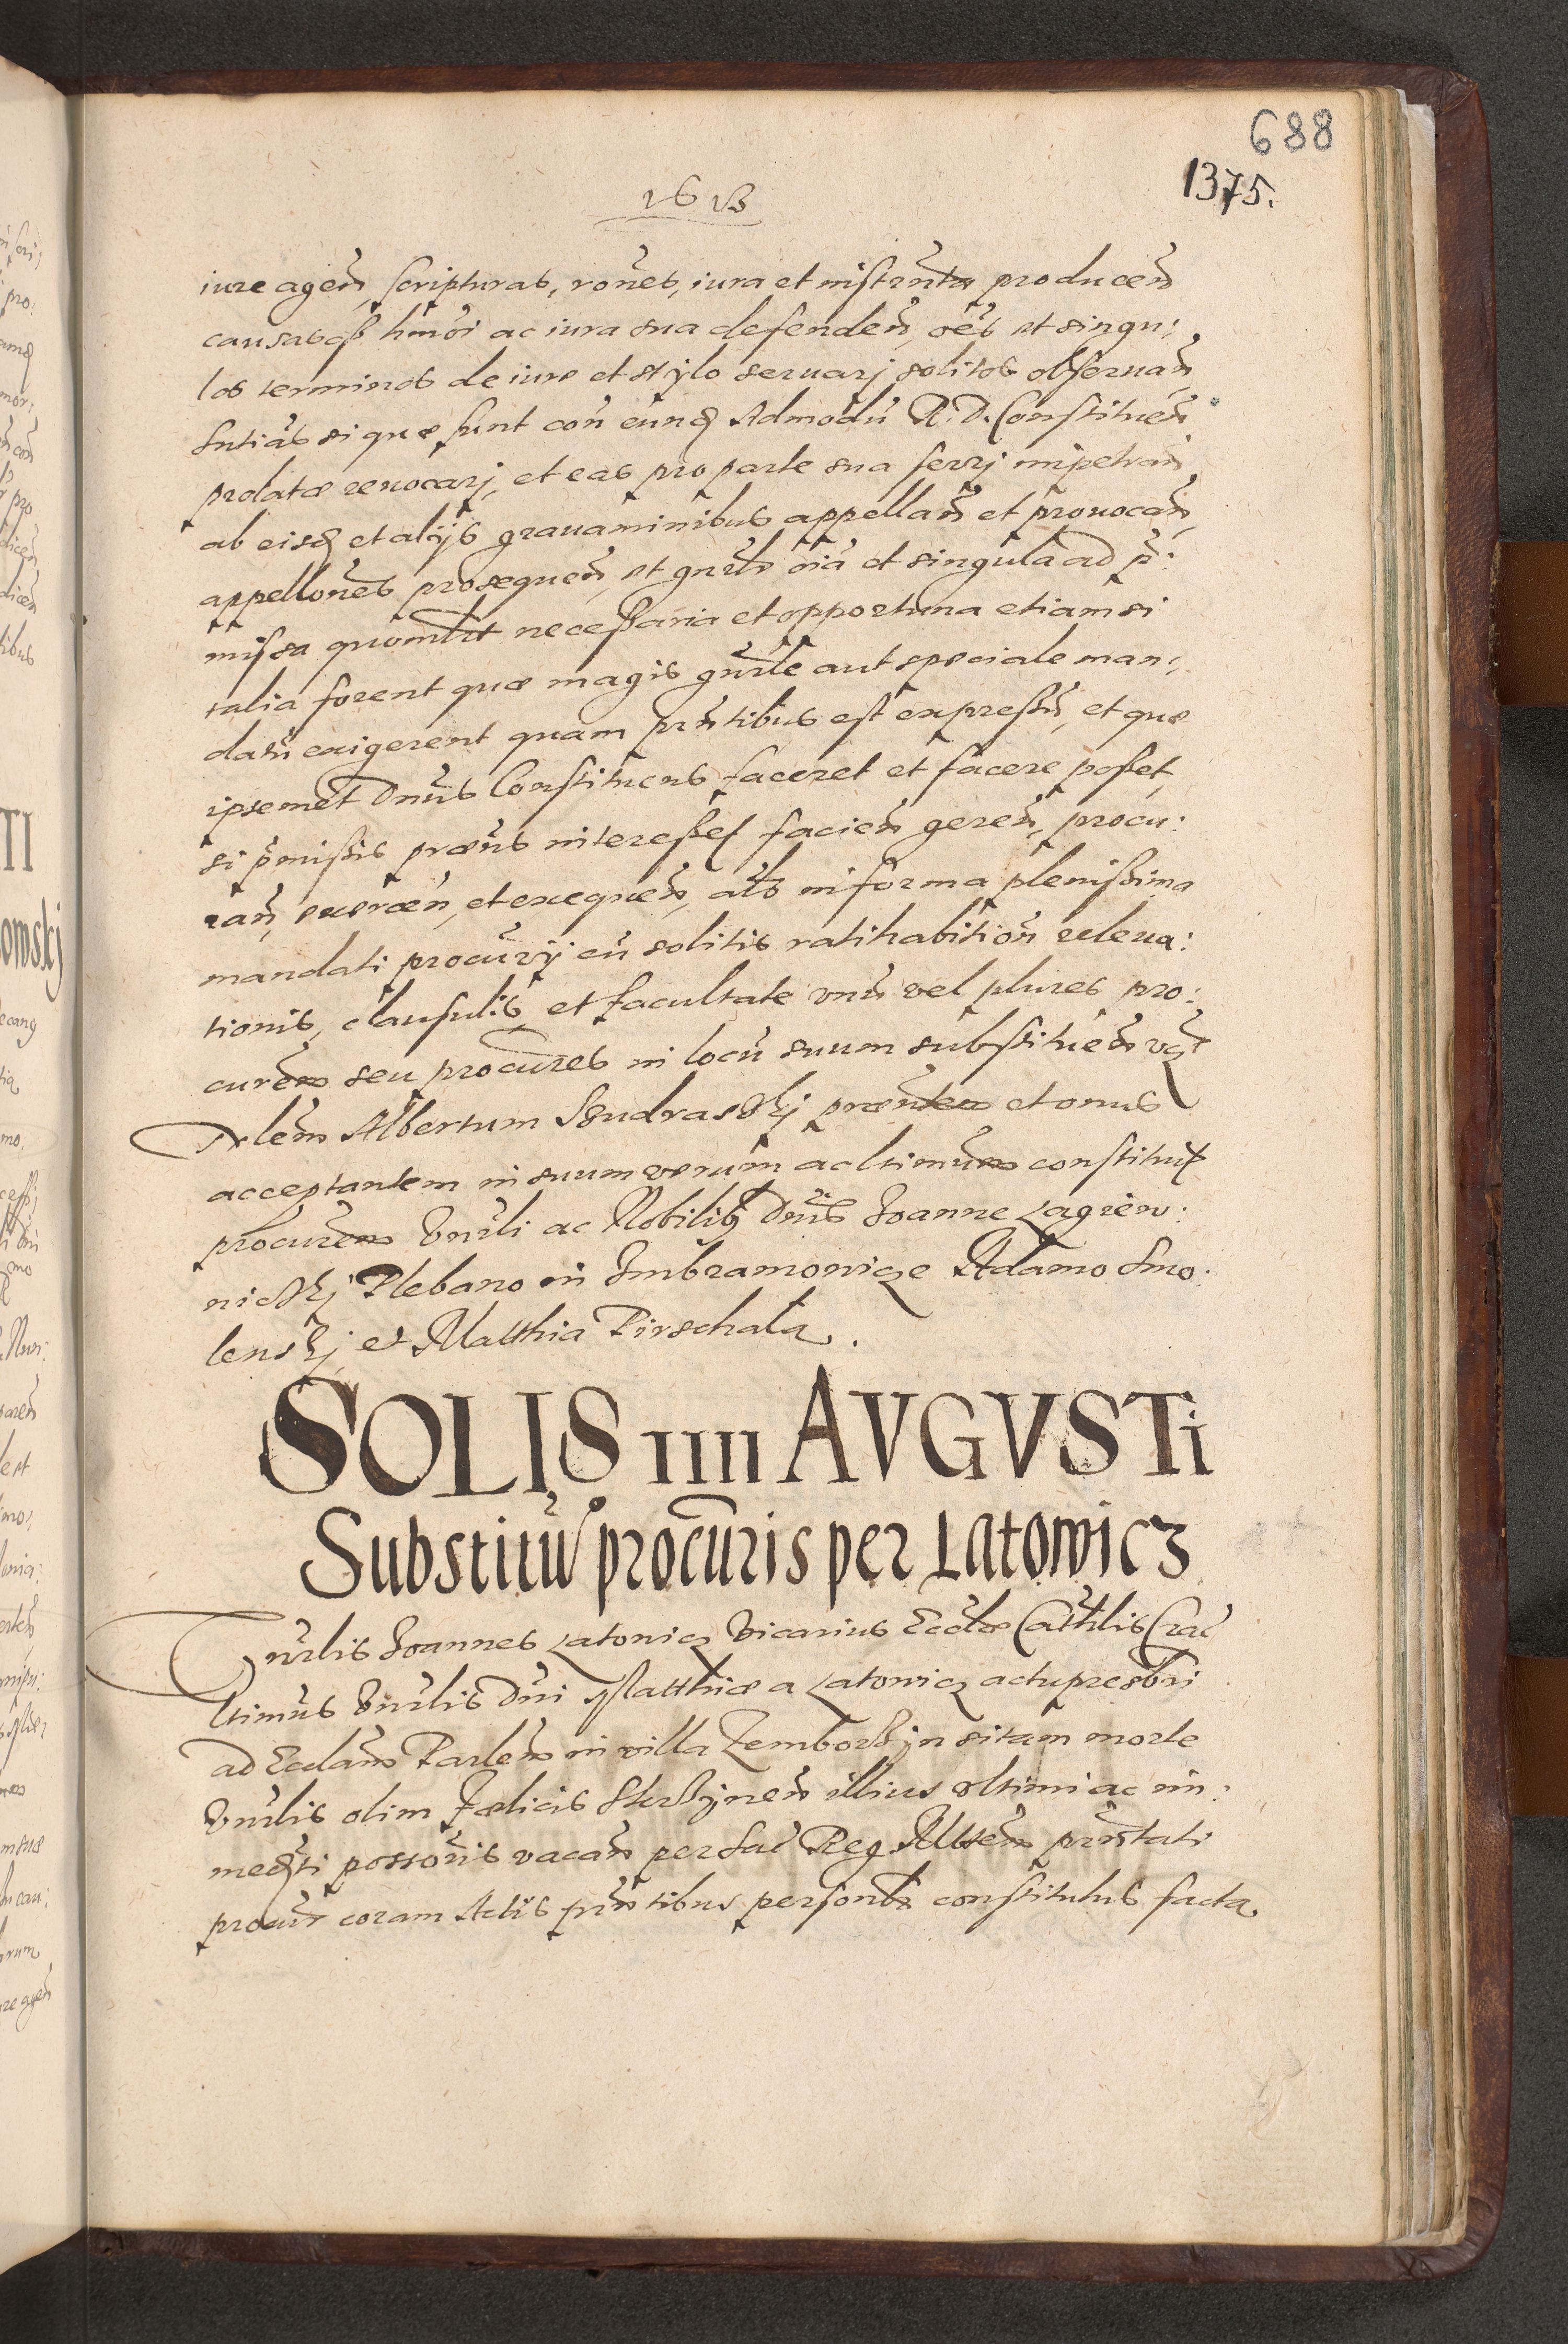 688
1375.
1613
iure agen̄, scripturas, rōnes, iura et instrm̄ta producen̄
causasq3 hm̄oi ac iura sua defenden̄, oēs et singu:
los terminos de iure et stylo seruarj solitos obseruan̄
Sntiās si quæ sunt con̄ eund̄ Admodū R. D. Constituen̄
prolatæ reuocarj, et eas pro parte sua ferrj impetran̄
ab eisd̄ et alijs grauaminibus appellan̄ et prouocan̄,
appellōnes prosequen̄, et gn̄rlr oīa et singula ad p̄:
missa quomlt necessaria et opportuna etiam si
talia forent quæ magis gn̄rle aut speciale man:
datū exigerent quam prn̄tibus est expressū, et quæ
ipsemet Dnūs Constituens faceret et facere posset,
si p̄missis præn̄s interesset facien̄ geren̄, procu:
ran̄, exercen̄, et exequen̄, als in forma plenissima
mandati procur̄ij cū solitis ratihabition̄ releua:
tionis, clausulis, et facultate vnū vel plures pro:
curem̄ seu procūres in locū suum substituen̄ vq3
Nlem̄ Albertum Szudraskj præn̄tem et onus
acceptantem in suum verum ac ltimum constituit
procurem̄ Vn̄rli ac Nobilib3 Dn̄is Joanne Zagrien:
nickj Plebano in Imbramowicze Adamo Smo:
lenskj et Matthia Pirschala.
SOLIS IIII AVGVSTi
Substitūo procūris per Latowicz
Vn̄rlis Joannes Latowicz Vicarius Ecclæ Cathlis Crac̄
ltimus Vn̄rlis Dn̄i Matthiæ a Latowicz actu presbrī
ad Ecclam̄ Parlem̄ in villa Zemborzyn sitam morte
Vn̄rlis olim Fœlicis Skrzynen̄ illius vltimi ac im:
med̄ti possōris vacan̄ per Sac̄ Reg. Mttem̄ prn̄tati
procur̄ coram Actis prn̄tibus personlr constitutus facta